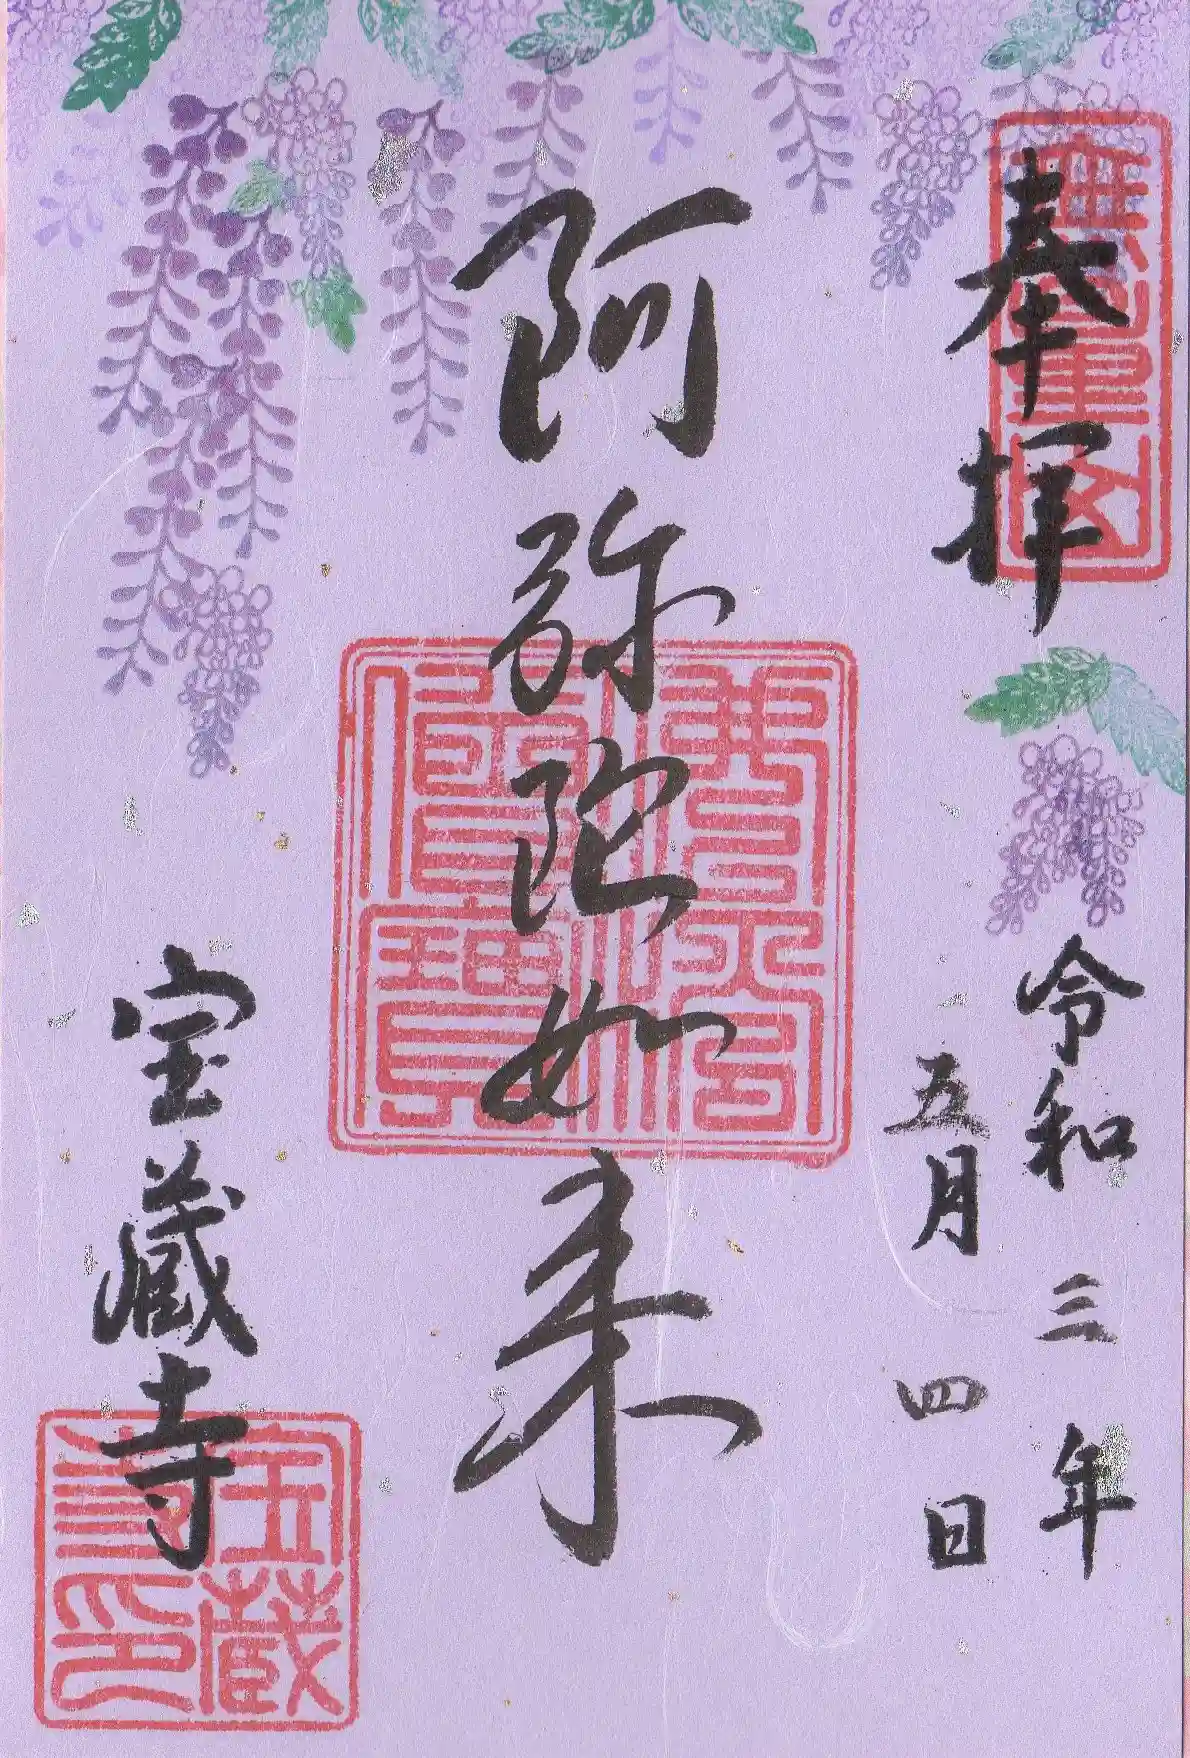 奉拝
令和三年
五月四日
阿弥陀如来
宝蔵寺
宝蔵寺印